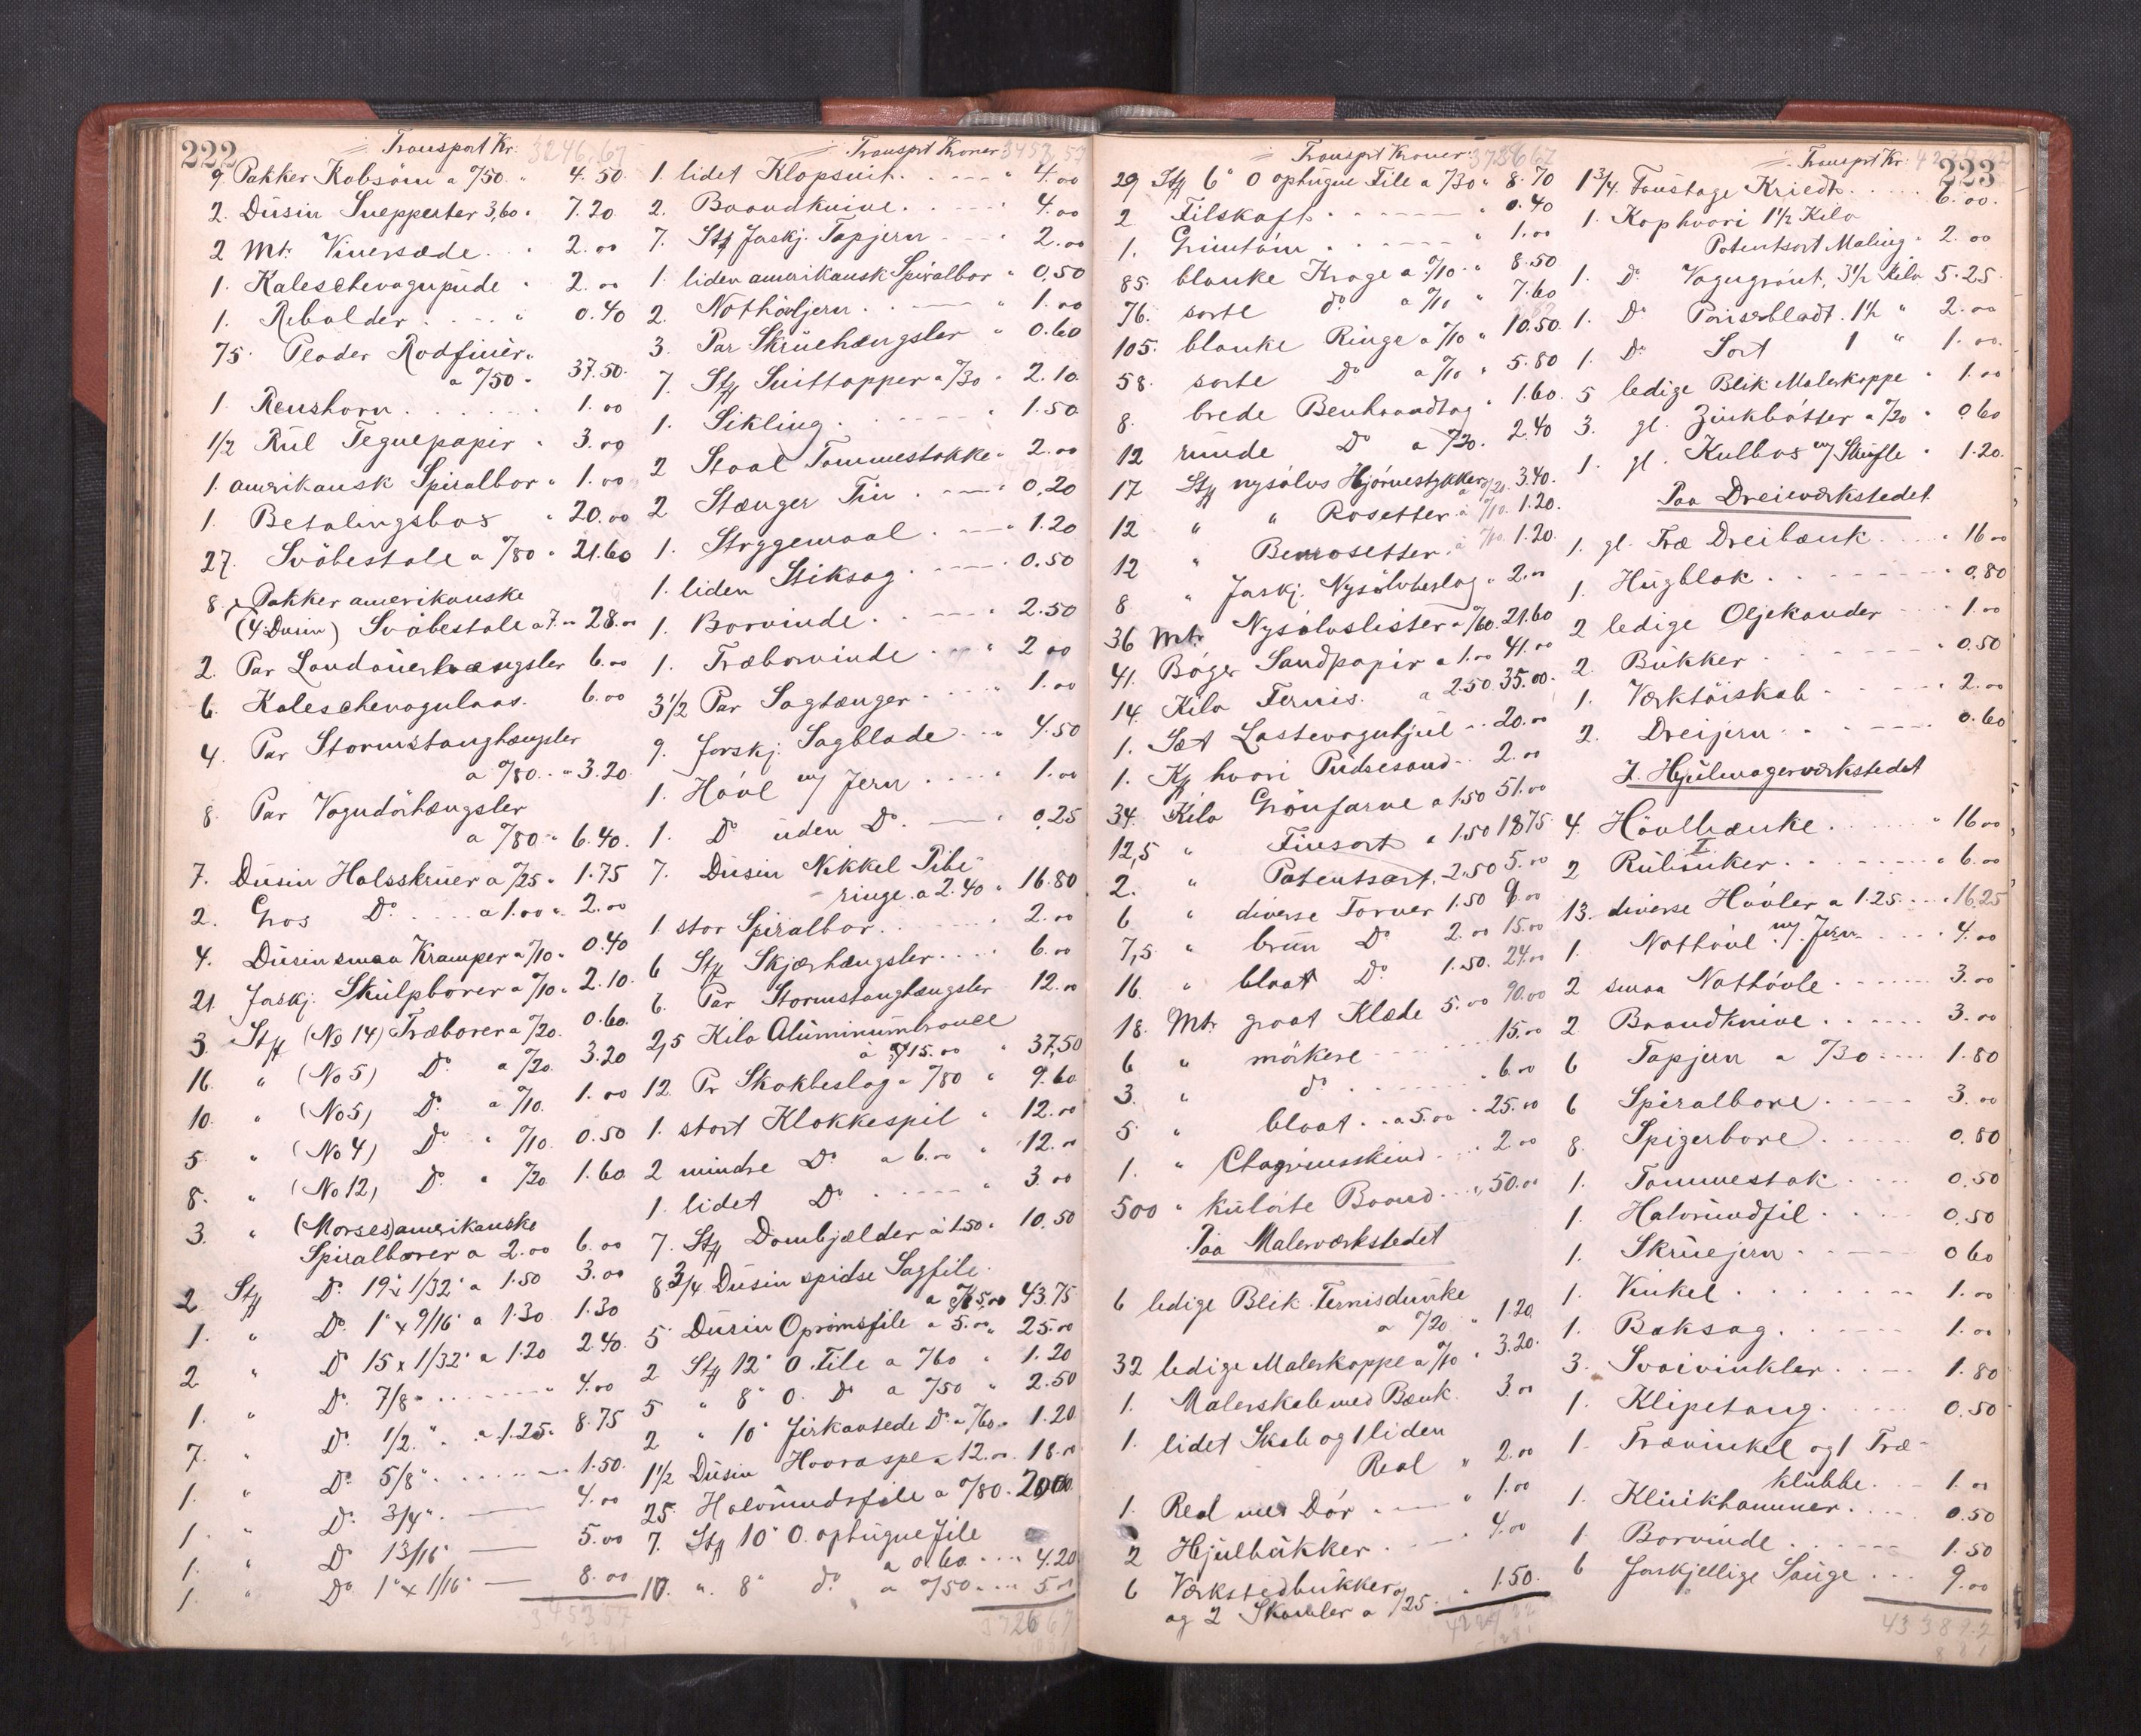 222
Transport Kr. 3246,67
9. Pakker Kobsöm a %50 " 4.50
2. Düsin Snepperter 3,60 " 7.20
2 Mt. Vinersæde " 2.00
1. Kaleschevognpüde " 2.00
1. Rebolder " 0.40
75. Plader Rodfinér
a %50 " 37.50
1. Renshorn 1.00
1/2 Rül Tegnepapir " 3.00
1. amerikansk Spiralbor " 1.00
1. Betalingsbos " 20.00
27. Svöbestole a %80 " 21.60
8. Pakker amerikanske
(4 Dusin) Svöbestole a 7.00 28.00
2. Par Landauerhængsler 6.00
6. Kaleschevognlaas. 6.00
4. Par Stormstanghængsler
a %80 " 3.20
8. Par Vogndörhængsler
a %80 " 6.40
7. Düsin Halsskrüer a %25 " 1.75
2. Gros Do a 1.00 " 2.00
4. Düsin smaa Kramper a %10 " 0.40
21. Forskj. Skülpborer a %10 " 2.10
3. Stk (No 14) Træborer a %20. 0.60
16. " (No 5) Do a %20 3.20
10. " (No 5) Do a %10. 1.00
5. " (No 4) Do " %10. 0.50
8. " (No 12) Do " %20 1.60
3. " (Morses) amerikanske
Spiralborer a 2.00 6.00
2 Stk Do 19" x 1/32" a 1.50 3.00
1. " Do 1" x 9/16" a 1.30 1.30
2 " Do 15 x 1/32" a 1.20 2.40
1. " Do 7/8" " 4.00
7. " Do 1/2" a 1.25 8.75
1. " Do 5/8" 1.50
1. " Do 3/4" 4.00
1. " Do 13/16" 5.00
1. " Do 1" x 1/16" 8.00
3453 57
Transprt Kroner 3453,57
1. lidet Klopsnit " 4.00
2. Baandknive 4.00
7. Stk Forskj. Tapjern " 2.00
1. liden amerikansk Spiralbor " 0,50
2. Nothövljern " 1.00
3. Par Skrüehængsler " 0.60
7. Stk Snittapper a %30 " 2.10
1. Sikling " 1.50
2 Staal Tommestokke " 2.00
2 Stænger Tin " 0,20
1. Stryggemaal " 1.20
1. liden Stiksag 0.50
1. Borvinde " 2.50
1. Træborvinde " 2 00
3 1/2 Par Sagtænger " 1.00
9. Forskj. Sagblade " 4.50
1. Hövl m/ Jern " 1.00
1. Do uden Do " 0,25
7. Düsin Nikkel Pibe-
ringe. a 2.40 " 16.80
1 stor Spiralbor 2.00
6 Stk Skjærhængsler 6.00
6. Par Stormstanghængsler 12.00
2,5 Kilo Alüminümbronce
à 15.00 " 37,50
12. Pr Skokbeslag a %80 " 9.60
1. stort Klokkespil " 12.00
2 mindre Do a 6.00 " 12.00
1. lidet Do " 3.00
7. Stk Dombjælder à 1.50 " 10.50
8 3/4 Düsin spidse Sagfile
a 5,00 43.75
5 Düsin Opromsfile a 5.00 " 25.00
2 Stk 12" O. File a %60 " 1.20
5 " 8" O. Do a %50 " 2.50
2 " 10" firkantede Do a %60 " 1.20
1 1/2 Düsin Hovraspe a 12.00 18.00
25. Halvründsfile a %80. 20,00
7. Stk 10" O. opbügne File
a 0.60 4.20
10. " 8" do a %50 5 00
3726 67
Transprt Kroner: 3726 67
29 Stk 6" O opbügne File a %30 " 8.70
2 Filskaft " 0.40
1. Grimtöm " 1.00
85. blanke Kroge a %10 " 8.50
76. sorte do a %10 " 7.60
105. blanke Ringe a %10 " 10.50
58. sorte Do a %10 " 5.80
8. brede Benhaandtag " 1.60
12 runde Do a %20 " 2.40
17 Stk nysölvs Hjörnestykker a %20 3.40
12 " " Rosetter a %10 1.20
12 " Benrosetter a %10 1.20
8 " Forskj. Nysölvbeslag " 2.00
36 Mt. Nysölvslister a %60 21.60
41. Böger Sandpapir a 1.00 41.00
14. Kilo Fernis. a 2.50 35.00
1. Sæt Lastevognhjul " 20.00
1. Kp hvori Püdsesand 2.00
34. Kilo Grönfarve a 1.50 51.00
12,5 " Finsort a 1.50 18.75
2. " Patentsort. 2.50 5.00
6 " diverse Farver 1.50 9.00
7,5 " brün Do 2.00 15.00
16. " blaat Do 1.50. 24.00
18. Mt. graat Klæde 5.00 90.00
6 " mörkere 15.00
3. " do " 6.00
5 " blaat a 5.00 " 25.00
1. " Chagrinsskind 2.00
500 " külörte Baand 50.00
Paa Malerværkstedet
6 ledige Blik Fernisdunke
a %20 " 1.20
32 ledige Malerkoppe a %10 " 3.20
1. Malerskab med Bænk. 3.00
1. lidet Skab og 1 liden
Reol " 2.00
1. Reol med Dör " 1.00
2 Hjülbükker " 4.00
6 Værkstedbükker
og 2 Skamler a %25 " 1.50
223
Transprt Kr.
1 3/4. Fustage Kriedt 6.00
1. Kop hvori 1 1/2 Kilo
Patentsort Maling " 2.00
1. Do Vogngrönt, 3 1/2 Kilo 5.25
1. Do Pariserblaat. 1 1/2 " 2.00
1. Do Sort 1 " 1.00
5 ledige Blik Malerkoppe " 1.00
3. gl. Zinkbötter a %20 " 0.60
1. gl. Kulbos m/ Skuffe " 1.20
Paa Dreieværkstedet
1. gl. Træ Dreibænk " 16.00
1. Hügblok " 0,80
2 ledige Oljekander 1.00
2. Bükker " 0.50
1. Værktöiskab " 2.00
2. Dreijern 0.60
I. Hjulmagerværkstedet
4. Hövlbænke " 16.00
2 Rübünker " 6.00
13. diverse Hövler a 1.25 " 16,25
1. Nothövl m/ Jern 4.00
2 smaa Nothövle 3.00
2 Baandknive 3.00
6 Tapjern a %30 1.80
6 Spiralbore 3.00
8. Spigerbore 0.80
1. Tommestok 0.50
1. Halvründfil 0,50
1. Skrüejern 0 60
1. Vinkel 1.00
1. Baksag 1.00
3. Svaivinkler 1.80
1. Klipetang 0.50
1. Trævinkel og 1 Træ-
klübbe 1.00
1. Klinkhammer 0.50
1. Borvinde 1.50
6 Forskjellige Sauge 9.00
4338 92